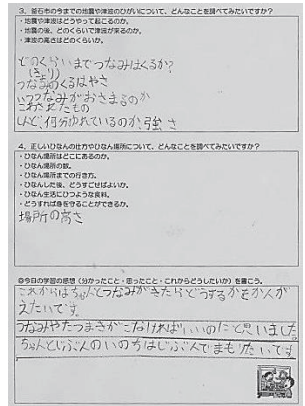 3．釜石市の今までの地震や津波のひがいについて、どんなことを調べてみたいですか？
・地震や津波はどうやって起こるのか。
・地震の後、どのくらいで津波が来るのか。
・津波の高さはどのくらいか。
どのくらいまでつなみはくるか？
(きょり)
つなみのくるはやさ
いつつなみがおさまるのか
こわされたもの
しんど、何分ゆれているのか、強さ
4．正しいひなんの仕方やひなん場所について、どんなことを調べてみたいですか？
・ひなん場所はどこにあるのか。
・ひなん場所の数。
・ひなん場所までの行き方。
・ひなんした後、どうすごせばよいか。
・ひなん生活にひつような食料。
・どうすれば身を守ることができるか。
場所の高さ
◎今日の学習の感想（分かったこと・思ったこと・これからどうしたいか）を書こう。
これからはちゃんとつなみがきたらどうするかをかんが
えたいです。
つなみやたつまきがこなければいいのにと思いました
ちゃんとじぶんのいのちはじぶんでまもりたいです